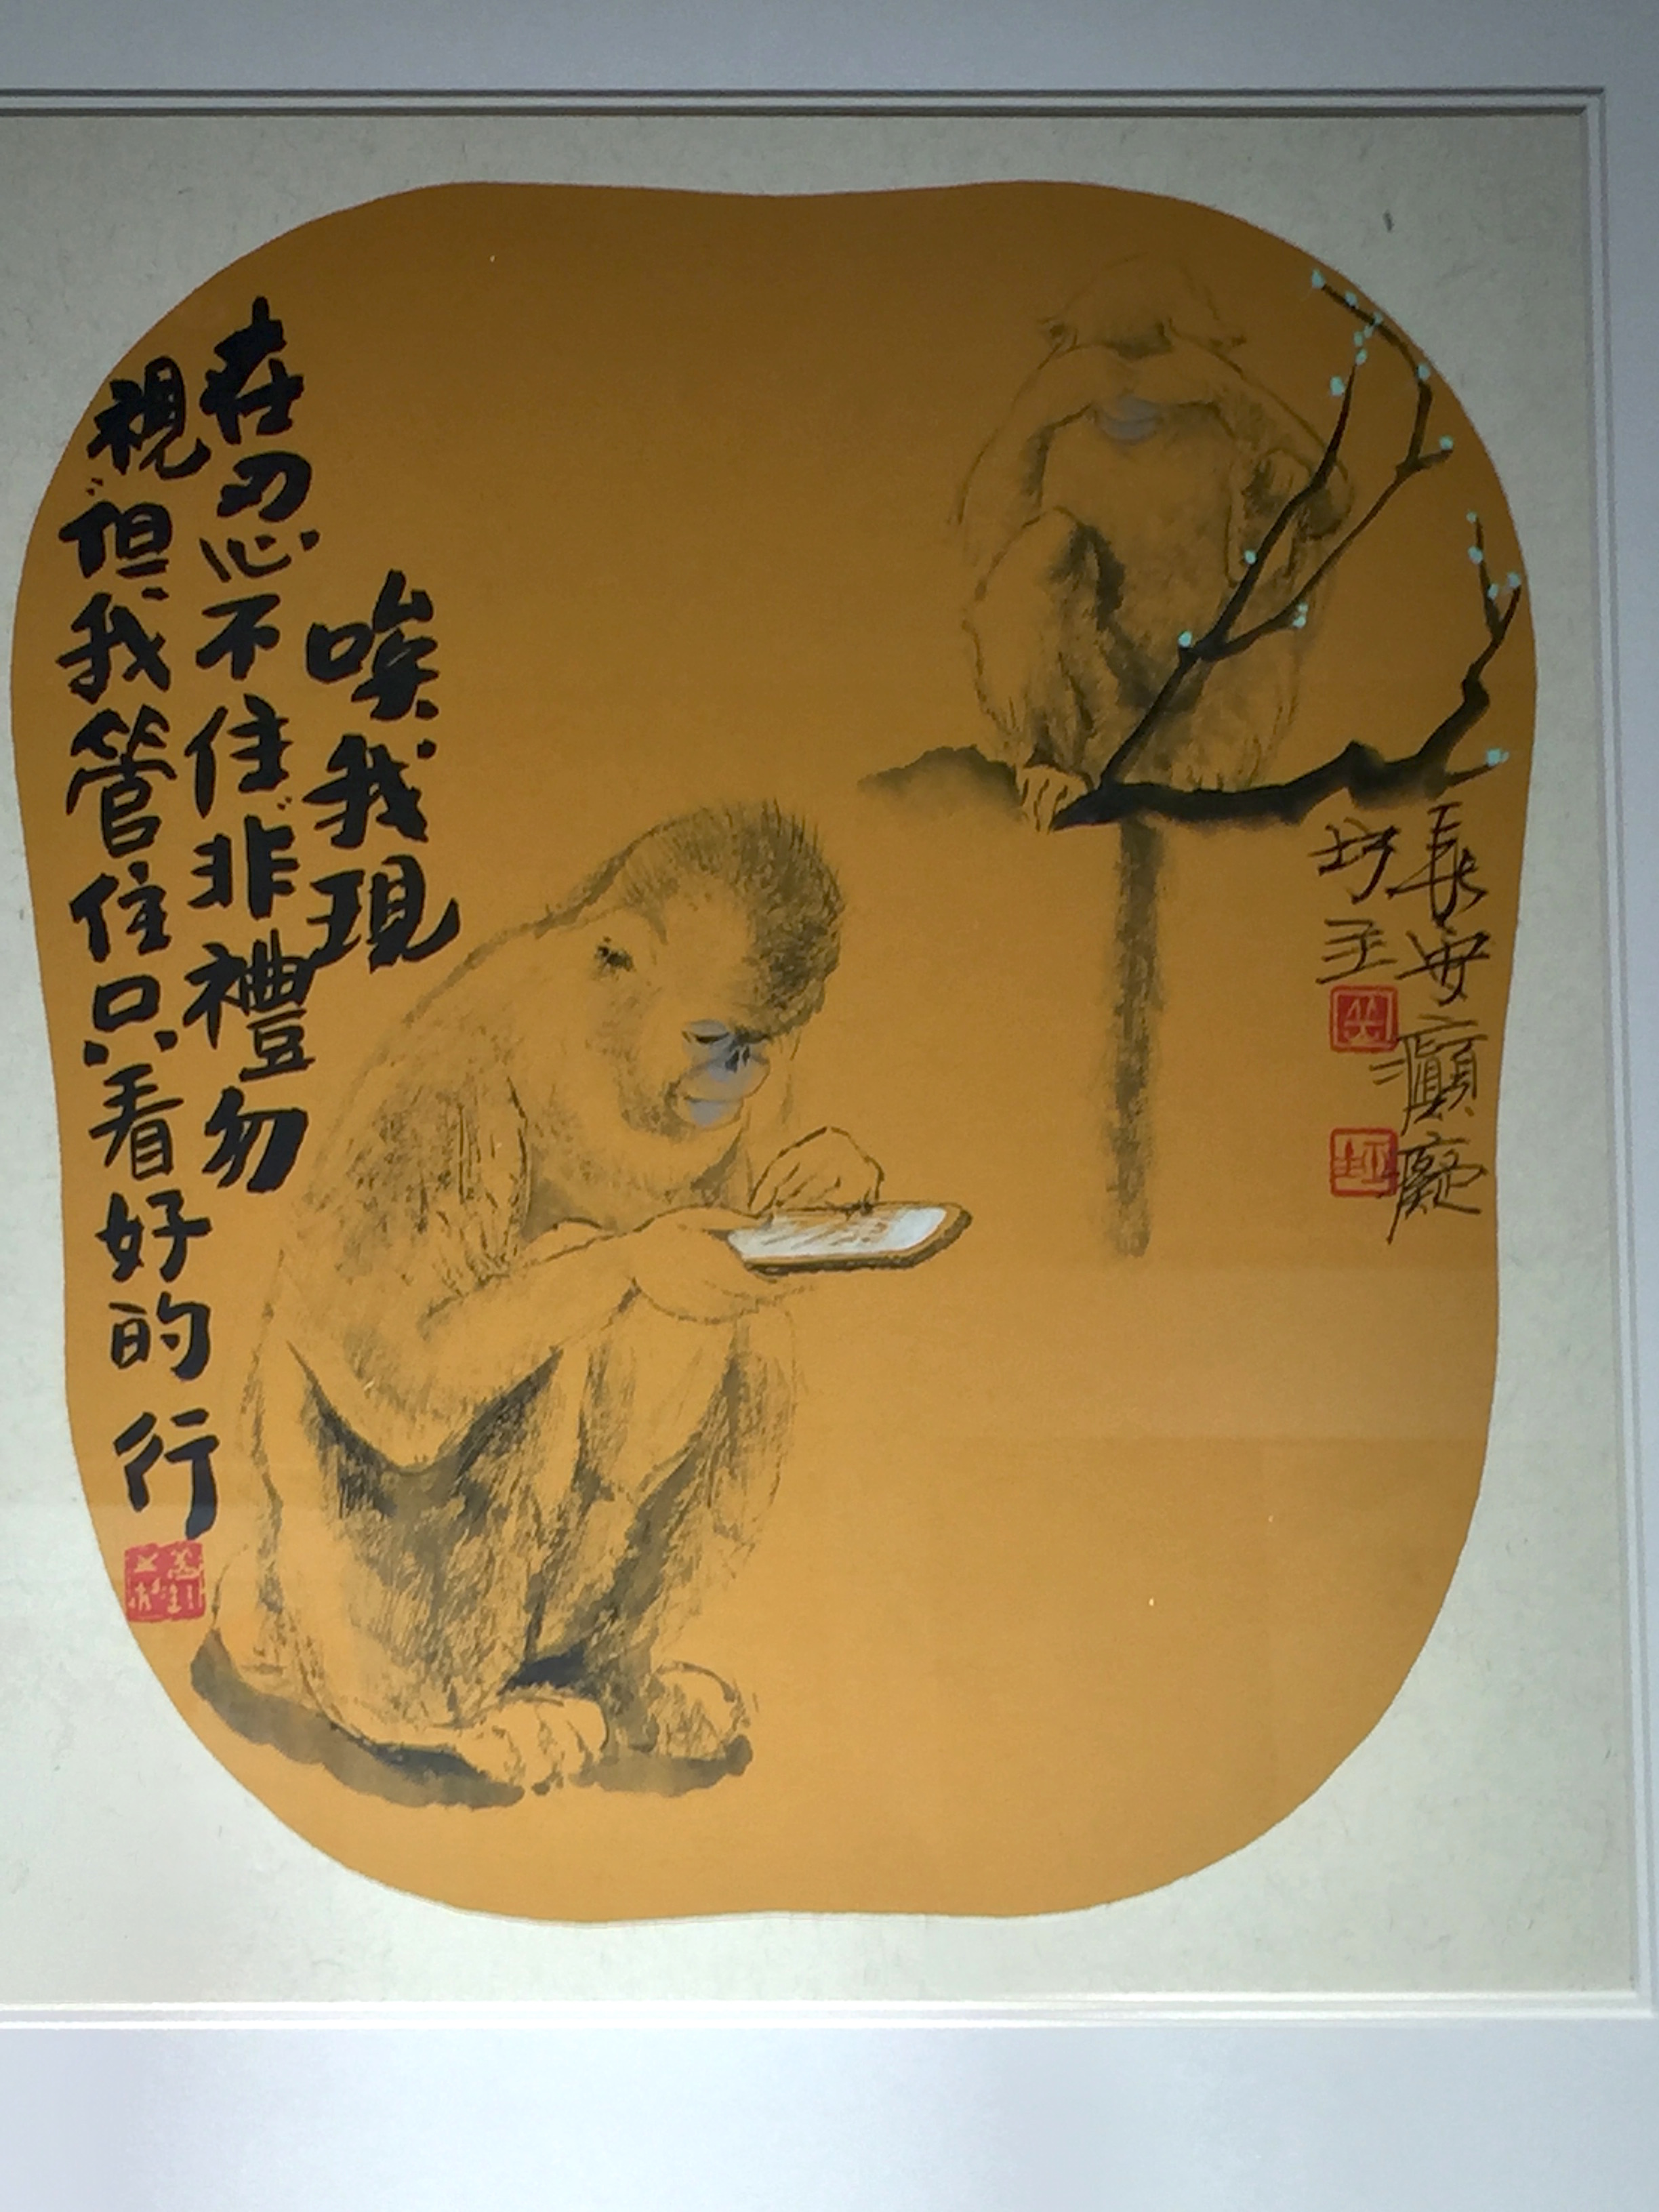 長安癲癡
坊主
唉我現
在忍不住"非禮勿
視"但我管住只看好的 行